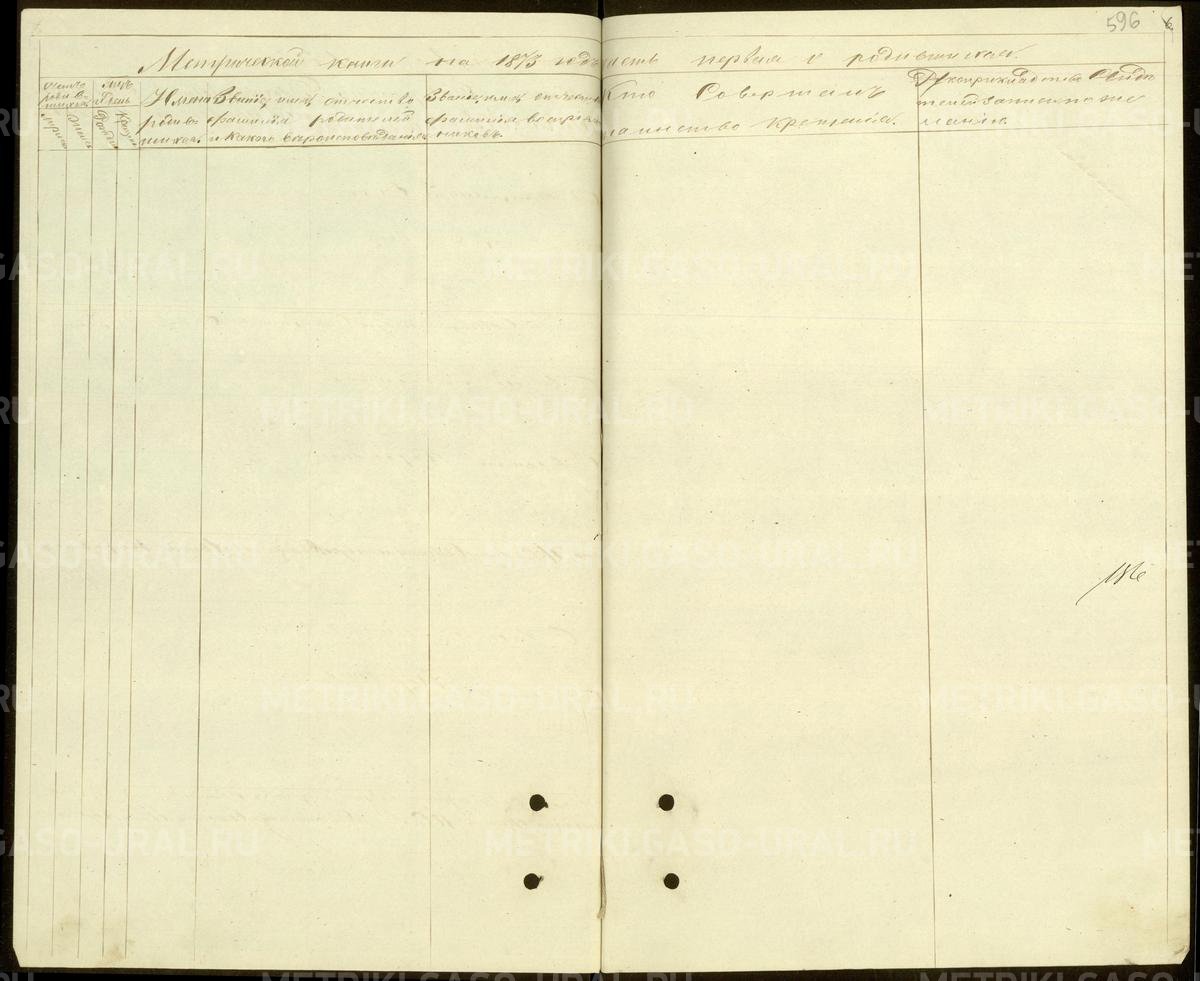 596
Метрической книги на 1873 годъ часть первая о родившихся.
Счетъ родив-шихся.
Мужеска
Женска
М-цъ и День
Рожден
Крещен
Имена
родив
шихся.
Званіе, имя, отчество
фамилія родителей
и какого вѣроисповѣданія
Званіе, имя, отчество
фамилія воспріем
никовъ.
Кто Совершалъ
таинство крещенія.
Рукоприкладство Свидѣ
телей записи по же
ланію.
186
METRIKI.GASO-URAL.RU